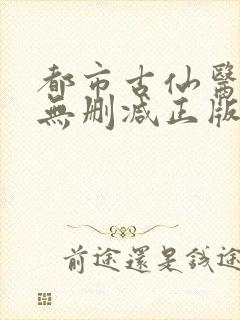 都市古仙醫
無刪減正版
前途還是錢途